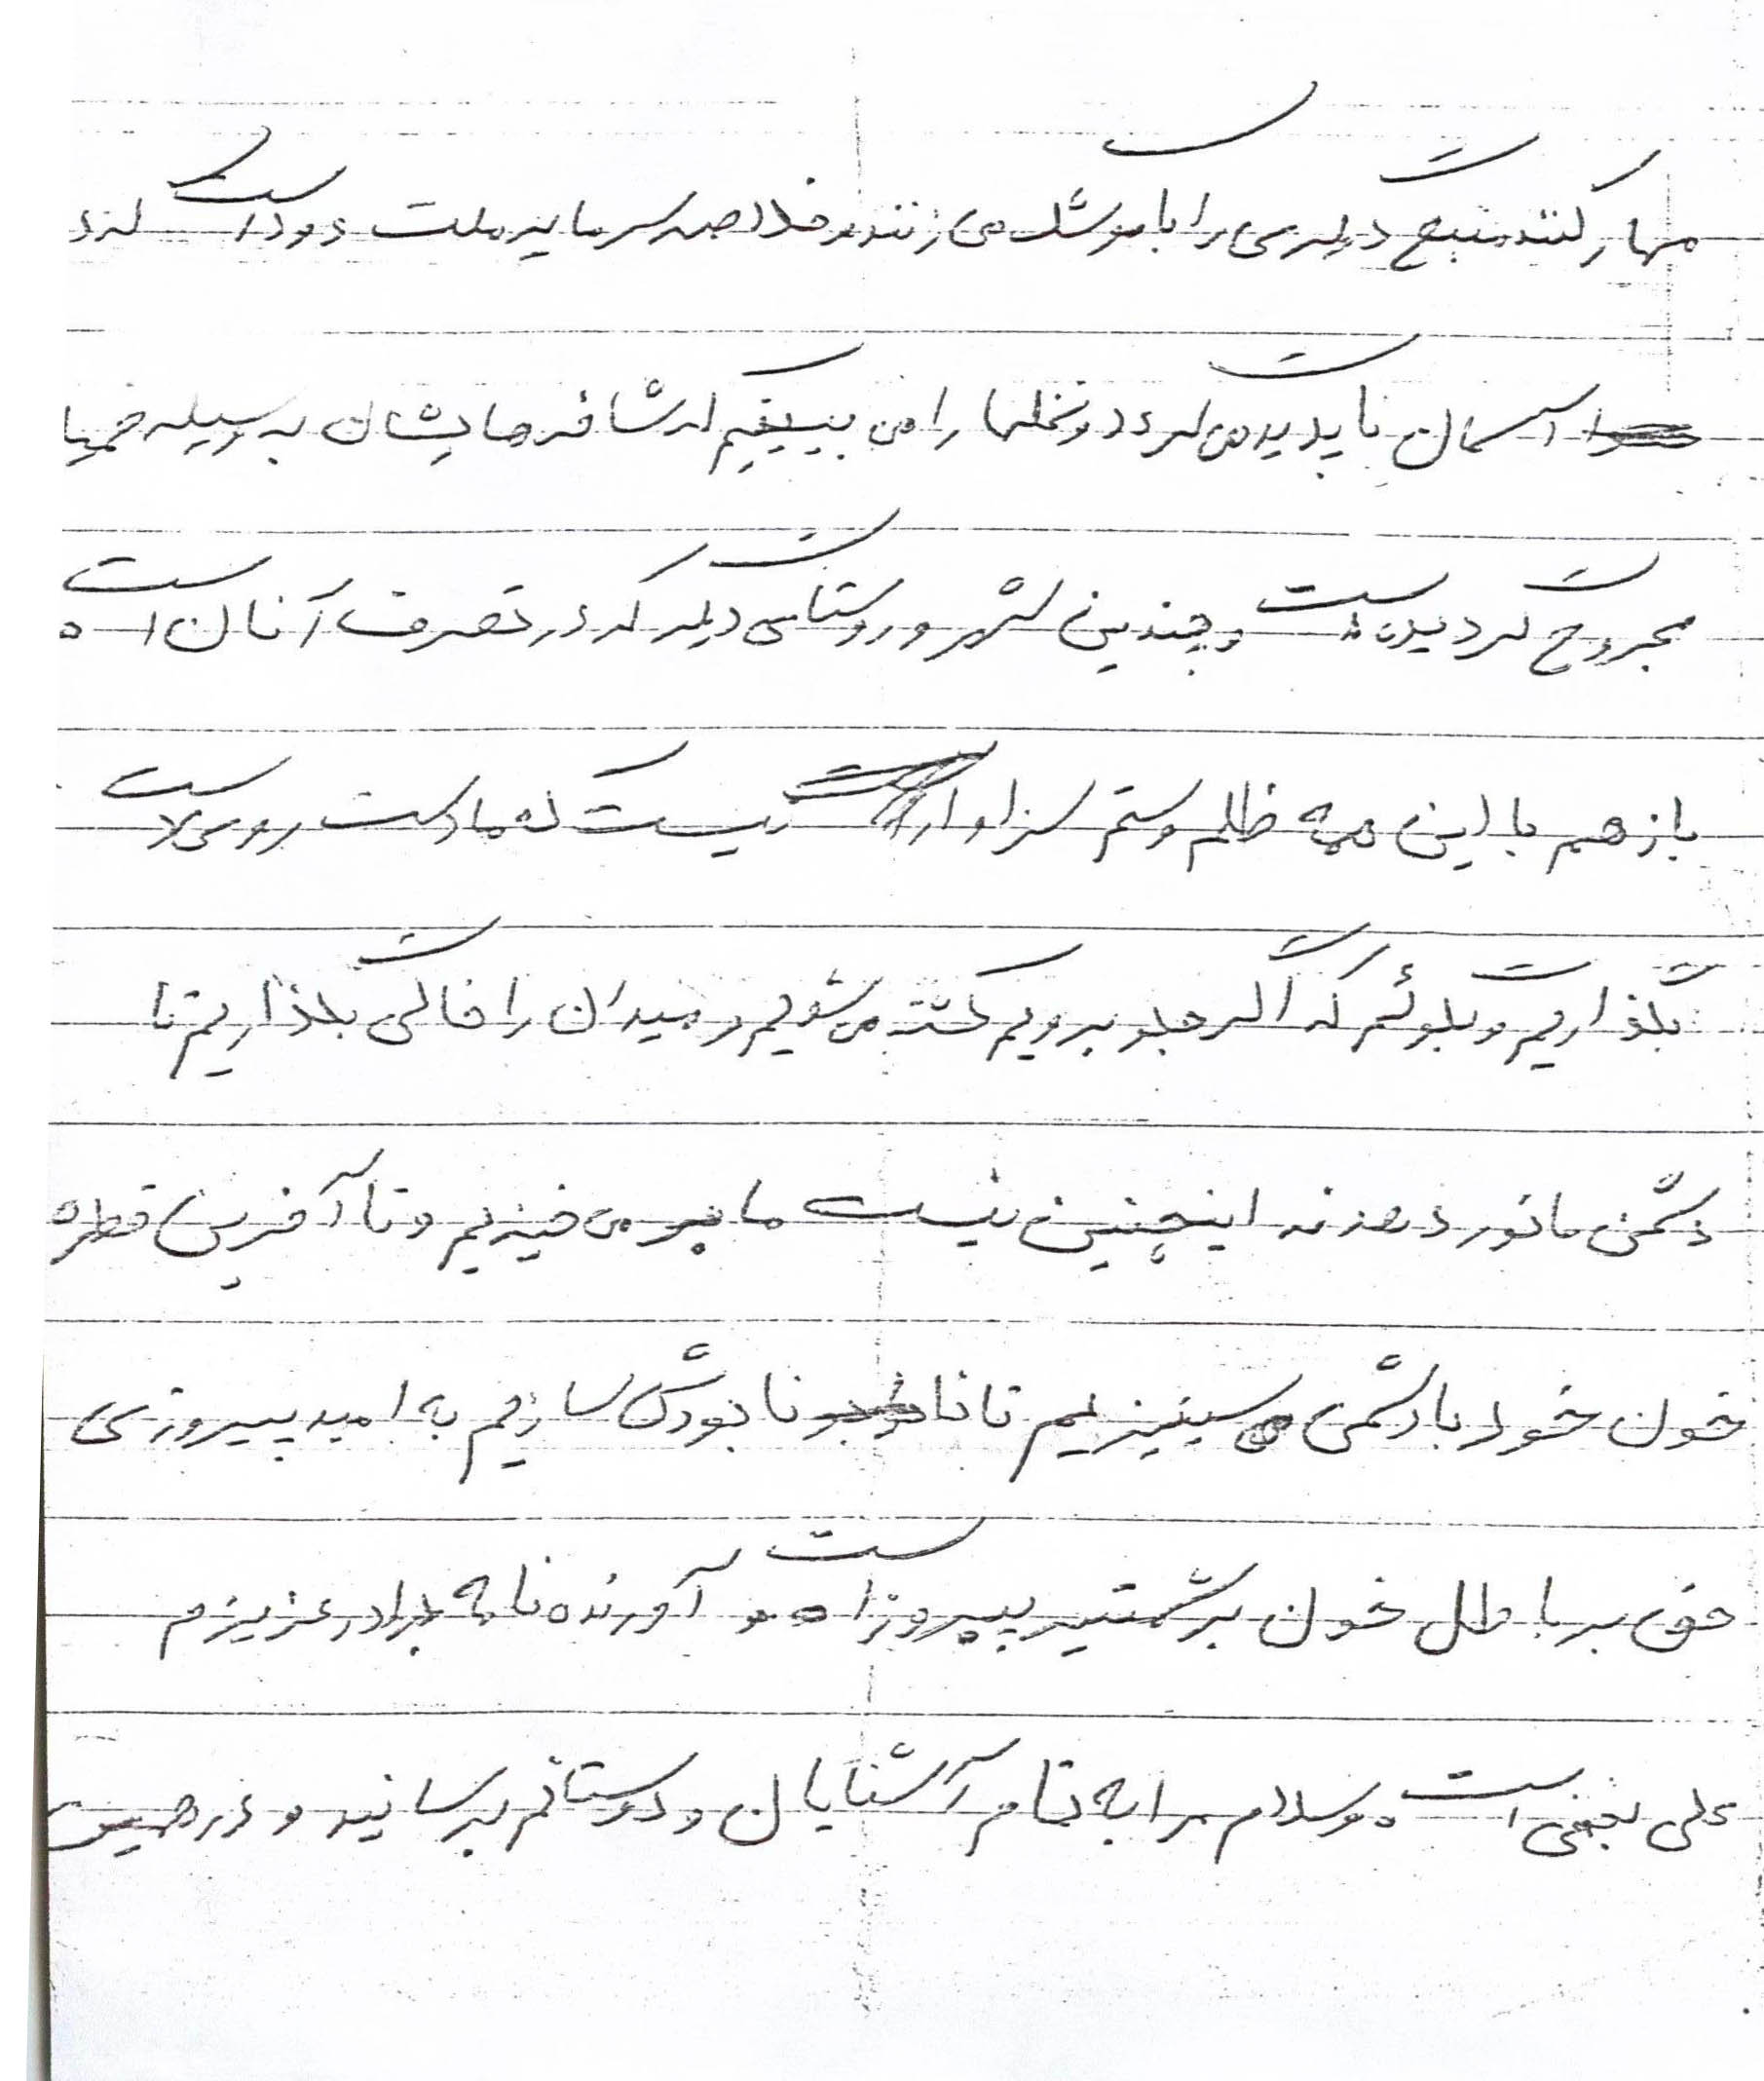 مهار کنند منبع دیگری را با موشک می زنند و خلاصه سرمایه ملت دود است که در
آسمان ناپدید می گردد و نخلها را می بینیم که شاخه هایشان به وسیله خمپا
مجروح گردیده است و چندین شهر و روستای دیگر که در تصرف آنان است ه
باز هم با این همه ظلم و ستم سزاوار نیست که ما دست روی دست
بگذاریم و بگوئیم که اگر جلو برویم کشته می شویم و میدان را خالی بگذاریم تا
دشمن مانور دهد نه اینچنین نیست ما بر می خیزیم و تا آخرین قطره
خون خود با دشمن می ستیزیم تا نابودش سازیم به امید پیروزی
حق بر باطل خون بر شمشیر پیروز است و آورنده نامه برادر عزیزم
علی نجفی است و سلام مرا به تمام آشنایان و دوستانم برسانید و در ضمن